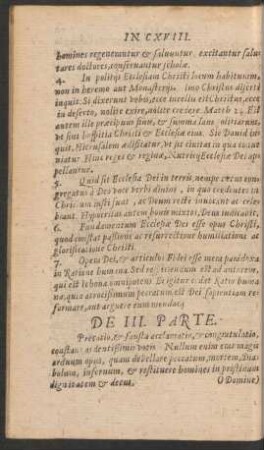 IN CXVIII.
homines regenerantur & saluantur, excitantur salu-
tares doctores, conseruantur scholæ.
4. In politijs Ecclesiam Christi locum habituram,
non in heremo aut Monasterijs. imo Christus disertè
inquit. Si dixerint vobis, ecce in cellis est Christus, ecce
in deserto, nolite exire, nolite credere Math 24. Est
autem illa præcipuum & summa laus
vt sint hospitia Christi & Ecclesiæ eius. Sic Dauid in-
quit, Hierusalem ædificatur, vt sit ciuitas in qua conue-
niatur Hinc reges & reginæ, Nutritij Ecclesiæ Dei ap-
pellantur.
5. Quid sit Ecclesia Dei in terris, nempe coetus con-
gregatus à Deo voce verbi diuini, in quo credentes in
Christum insiti sunt, ac Deum rectè inuocant ac cele-
brant. Hypocritas autem bonis mixtos, Deus iudicabit.
6. Fundamentum Ecclesiæ Dei esse opus Christi,
quod constat passione ac resurrectione humiliatione ac
glorificatione Christi.
7. Opera Dei, & articulos Fidei esse mera paradoxa
in Ratione humana. Sed respiciendum est ad autorem,
qui est Iehoua omnipotens Et igitur cedet Ratio huma-
na, quia atrocissimum peccatum est Dei sapientiam re-
formare, aut arguere eum mendacij
DE III. PARTE.
Precatio, & fausta acclamatio, & congratulatio,
constans ardentissimis votis Nullum enim extat magis
arduum opus, quam debellare peccatum, mortem, Dia-
bolum, infernum, & restituere homines in pristinam
dignitatem & decus. O Domine)